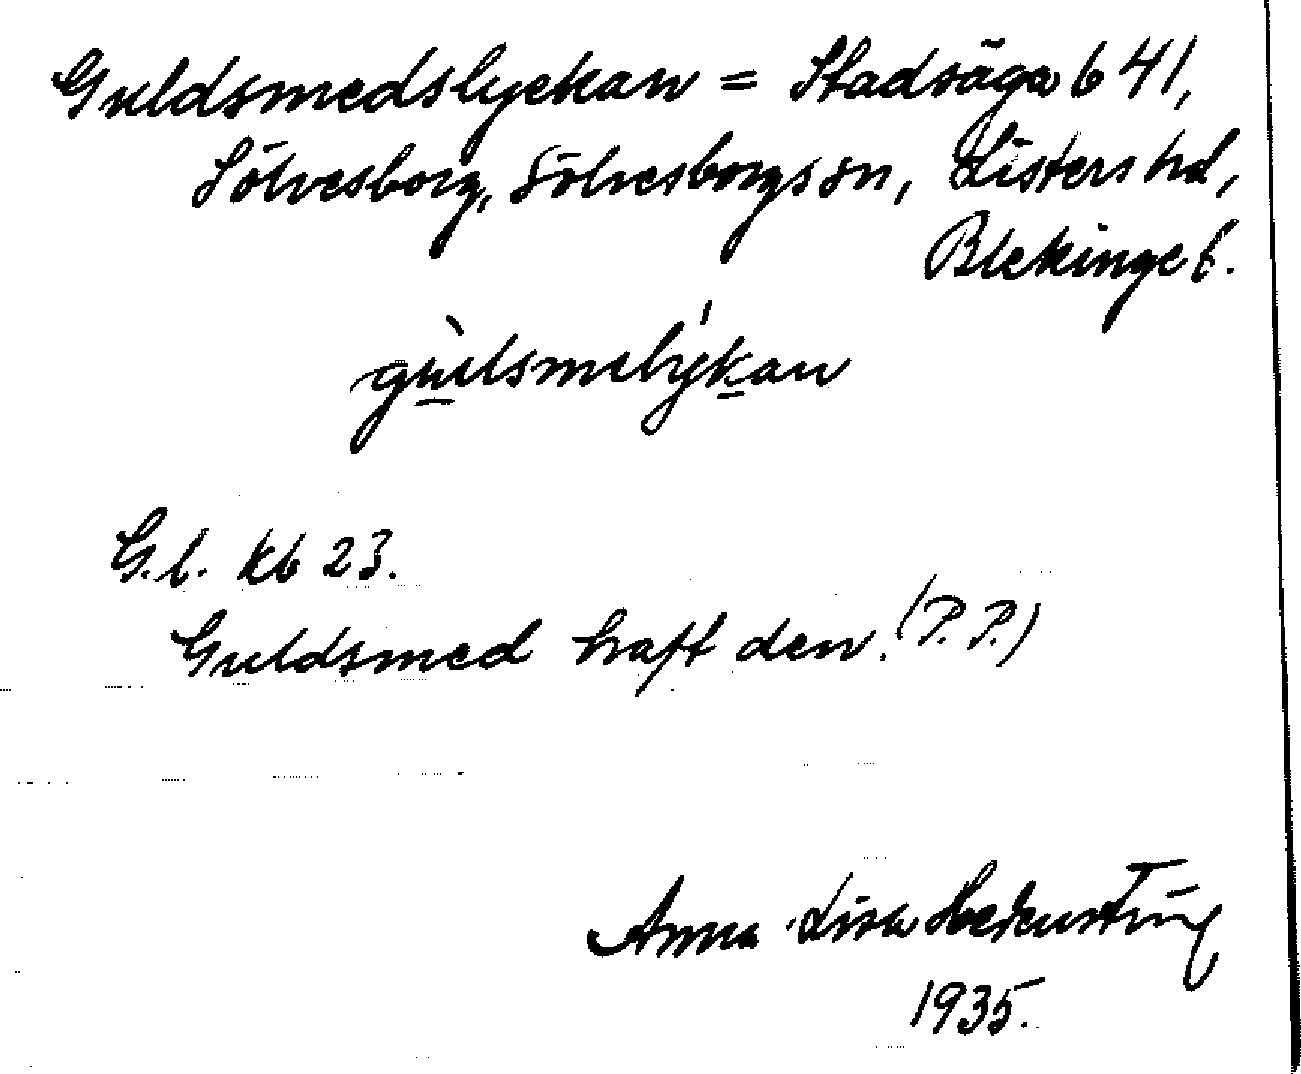 Guldsmedslyckan = Stadsäga b 41,
Sölvesborg, Sölvesborgs sn, Listers hd,
Blekinge l.
gùlsmelýkan
G.l. kb 23.
Guldsmed haft den. (P. P.)
Anna Lisa
1935.